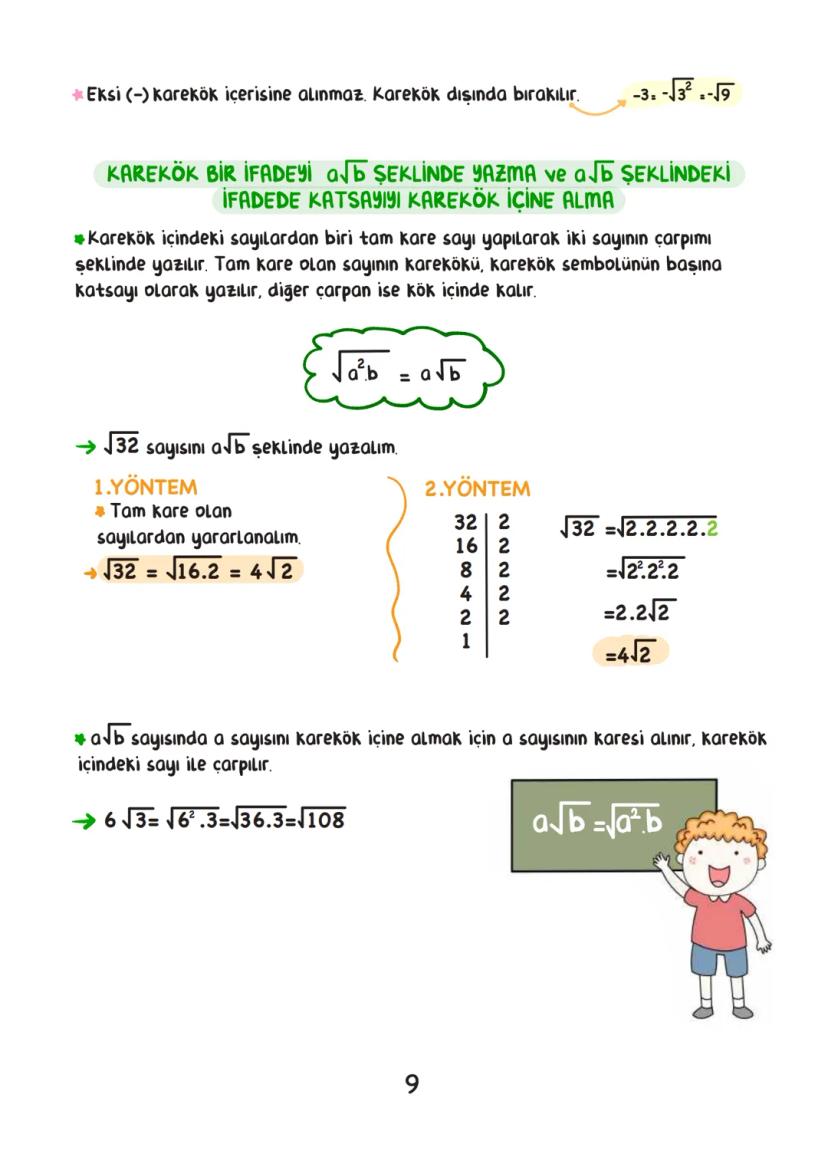 Eksi (-) karekök içerisine alınmaz. Karekök dışında bırakılır. -3= -√3² =-√9
KAREKÖK BİR İFADEYİ a√b ŞEKLİNDE YAZMA ve a√b ŞEKLİNDEKİ
İFADEDE KATSAYIYI KAREKÖK İÇİNE ALMA
Karekök içindeki sayılardan biri tam kare sayı yapılarak iki sayının çarpımı
şeklinde yazılır. Tam kare olan sayının karekökü, karekök sembolünün başına
katsayı olarak yazılır, diğer çarpan ise kök içinde kalır.
√a².b = a√b
→ √32 sayısını a√b şeklinde yazalım.
1.YÖNTEM
Tam kare olan
sayılardan yararlanalım.
→ √32 = √16.2 = 4√2
2.YÖNTEM
32 | 2
16 | 2
8 | 2
4 | 2
2 | 2
1 |
√32 =√2.2.2.2.2
=√2².2².2
=2.2√2
=4√2
a√b sayısında a sayısını karekök içine almak için a sayısının karesi alınır, karekök
içindeki sayı ile çarpılır.
→ 6√3= √6².3=√36.3=√108
a√b=√a².b
9